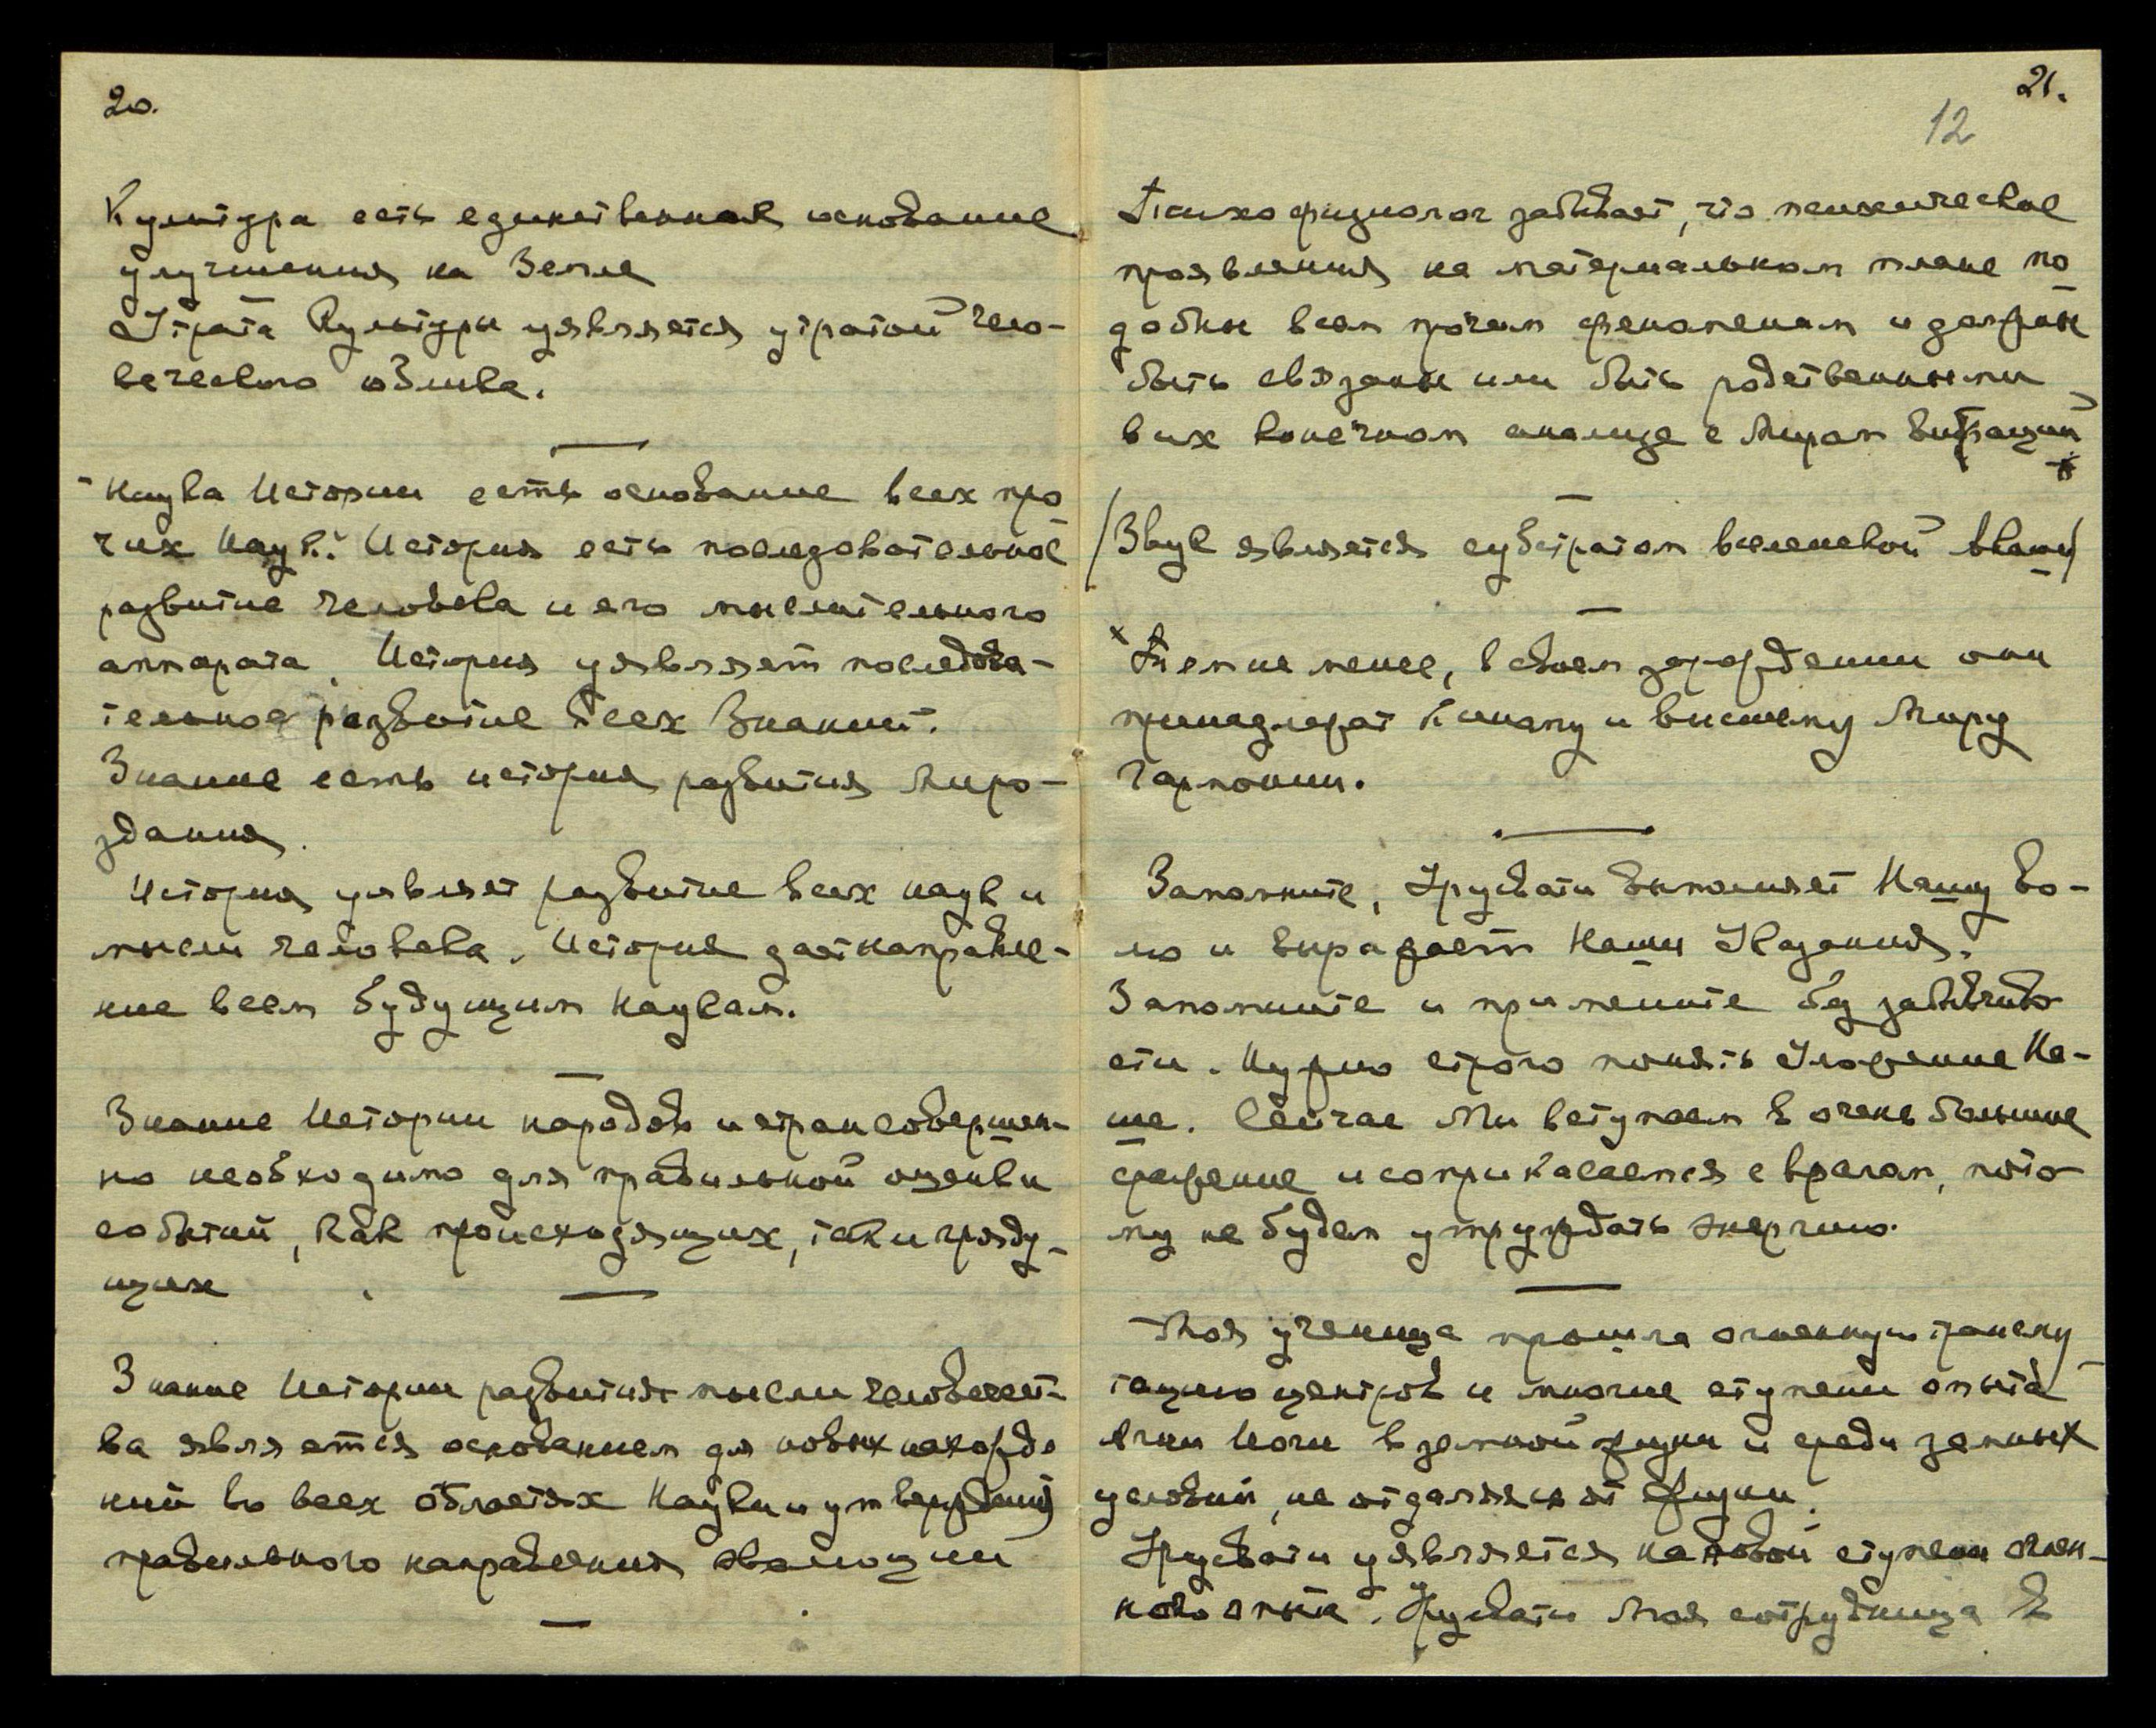 20.
Культура есть единственная основание
улучшения на Земле
Утрата Культуры уявляется утратой чело-
веческого облика.
"Наука Истории есть основание всех про-
чих Наук". История есть последовательное
развитие человека и его мыслительного
аппарата. История уявляет последова-
тельное развитие всех Знаний.
Знание есть история развития Миро-
здания.
История уявляет развитие всех наук и
мысли человека. История дает направле-
ние всем будущим Наукам.
Знание Истории народов и стран совершен-
но необходимо для правильной оценки
событий, как происходящих, так и гряду-
щих
Знание Истории развития мысли человечест-
ва является основанием для новых нахожде
ний во всех областях Науки и утверждений
правильного направления эволюции
21.
12
Психофизиолог забывает, что психические
проявления на материальном плане по-
добны всем прочим феноменам и должны
быть связаны или быть родственными
в их конечном анализе с Миром Вибраций
*
/Звук является субстратом вселенской Акаши/
x Тем не менее, в своем зарождении они
принадлежат к иному и высшему Миру
Гармонии.
Запомните, Урусвати выполняет Нашу Во-
лю и выражает Наши Указания.
Запомните и примените без забывчиво
сти. Нужно строго понять Уложение На-
ше. Сейчас Мы вступаем в очень большие
сражение и соприкасаемся с врагом, пото-
му не будем утруждать энергию.
Моя ученица прошла огненную трансму-
тацию центров и многие ступени опыта
Агни Йоги в земной жизни и среди земных
условий, не отдаляясь от жизни.
Урусвати уявляется на новой ступени огнен-
ного опыта. Урусвати Моя сотрудница в